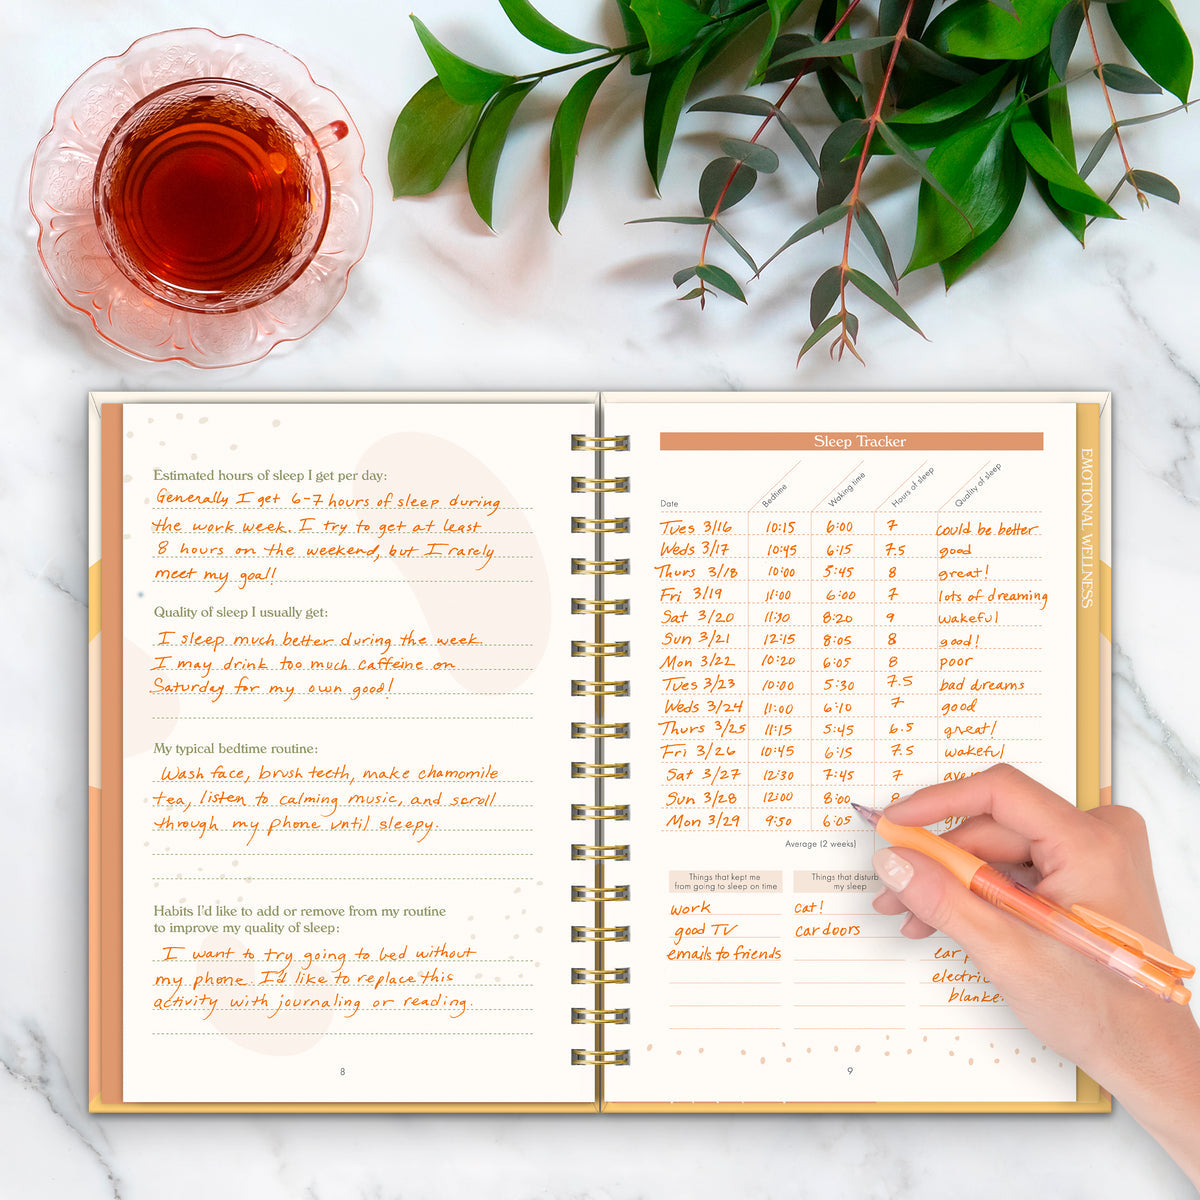 Estimated hours of sleep I get per day:
Generally I get 6-7 hours of sleep during
the work week. I try to get at least
8 hours on the weekend, but I rarely
meet my goal!
Quality of sleep I usually get:
I sleep much better during the week.
I may drink too much caffeine on
Saturday for my own good!
My typical bedtime routine:
Wash face, brush teeth, make chamomile
tea, listen to calming music, and scroll
through my phone until sleepy.
Habits I'd like to add or remove from my routine
to improve my quality of sleep:
I want to try going to bed without
my phone. I'd like to replace this
activity with journaling or reading.
8
Sleep Tracker
Date Bedtime Waking time Hours of sleep Quality of sleep
Tues 3/16 10:15 6:00 7 could be better
Weds 3/17 10:45 6:15 7.5 good
Thurs 3/18 10:00 5:45 8 great!
Fri 3/19 11:00 6:00 7 lots of dreaming
Sat 3/20 11:30 8:20 9 wakeful
Sun 3/21 12:15 8:05 8 good!
Mon 3/22 10:20 6:05 8 poor
Tues 3/23 10:00 5:30 7.5 bad dreams
Weds 3/24 11:00 6:10 7 good
Thurs 3/25 11:15 5:45 6.5 great!
Fri 3/26 10:45 6:15 7.5 wakeful
Sat 3/27 12:30 7:45 7
Sun 3/28 12:00 8:00
Mon 3/29 9:50 6:05
Average (2 weeks)
Things that kept me
from going to sleep on time
work
good TV
emails to friends
Things that disturb
my sleep
cat!
car doors
ear
electric
blanke
9
EMOTIONAL WELLNESS